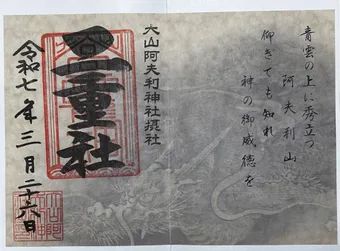 青雲の上に秀立つ
阿夫利山
仰きても知れ
神の御威徳を
大山阿夫利神社摂社
二重社
令和七年三月二十六日